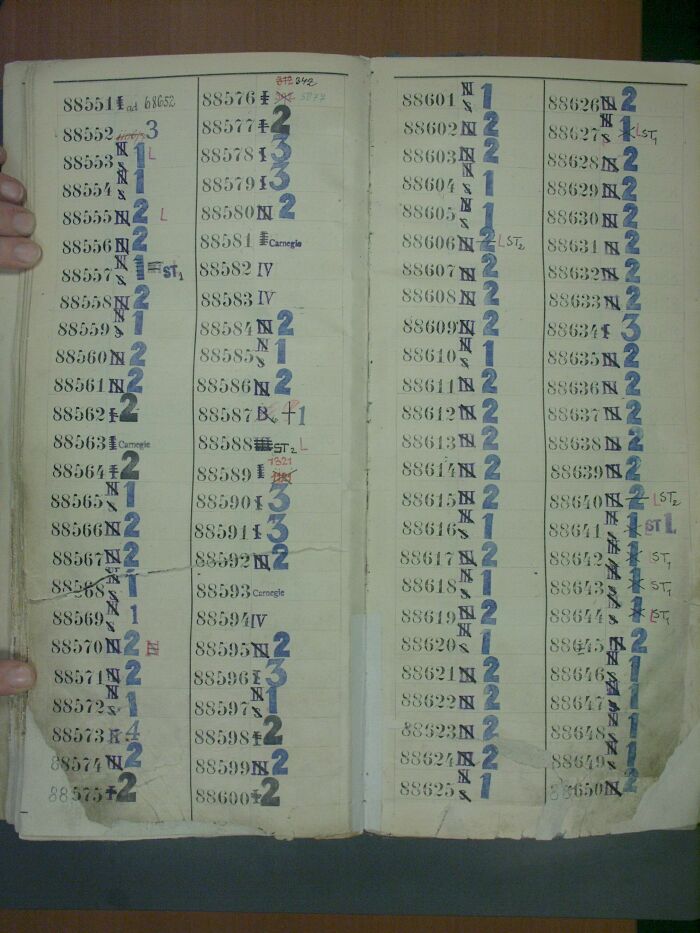 88551 I ad 68652
88552 3
88553 N 1 L
88554 N s 1
88555 N 2 L
88556 N 2
88557 N s 1 ST1
88558 N 2
88559 N s 1
88560 N 2
88561 N 2
88562 I 2
88563 I Carnegie
88564 I 2
88565 N s 1
88566 N 2
88567 N 2
88568 N s 1
88569 N s 1
88570 N 2 N
88571 N 2
88572 N s 1
88573 4
88574 N 2
88575 I 2
342
88576 I
88577 I 2
88578 I 3
88579 I 3
88580 N 2
88581 I Carnegie
88582 IV
88583 IV
88584 N 2
88585 N s 1
88586 N 2
88587 1
88588 ST2 L
1321
88589 I
88590 I 3
88591 I 3
88592 N 2
88593 Carnegie
88594 IV
88595 N 2
88596 I 3
88597 N s 1
88598 I 2
88599 N 2
88600 I 2
88601 N s 1
88602 N 2
88603 N 2
88604 N s 1
88605 N s 1
88606 N 2 L ST2
88607 N 2
88608 N 2
88609 N 2
88610 N s 1
88611 N 2
88612 N 2
88613 N 2
88614 N 2
88615 N 2
88616 N s 1
88617 N 2
88618 N s 1
88619 N 2
88620 N s 1
88621 N 2
88622 N 2
88623 N 2
88624 N 2
88625 N s 1
88626 N 2
88627 N s 1 L ST1
88628 N 2
88629 N 2
88630 N 2
88631 N 2
88632 N 2
88633 N 2
88634 I 3
88635 N 2
88636 N 2
88637 N 2
88638 N 2
88639 N 2
88640 N 2 L ST2
88641 N s 1 ST 1
88642 N s 1 ST1
88643 N s 1 ST1
88644 N s 1 ST1
88645 N 2
88646 N s 1
88647 N s 1
88648 N s 1
88649 N s 1
88650 N 2